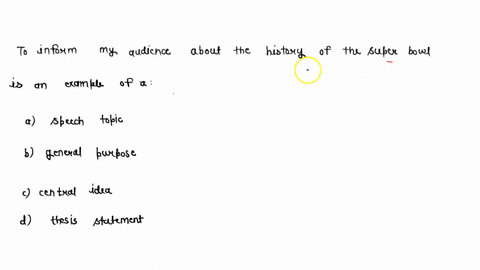 To inform my audience about the history of the super bowl
is an example of a:
a) speech topic
b) general purpose
c) central idea
d) thesis statement